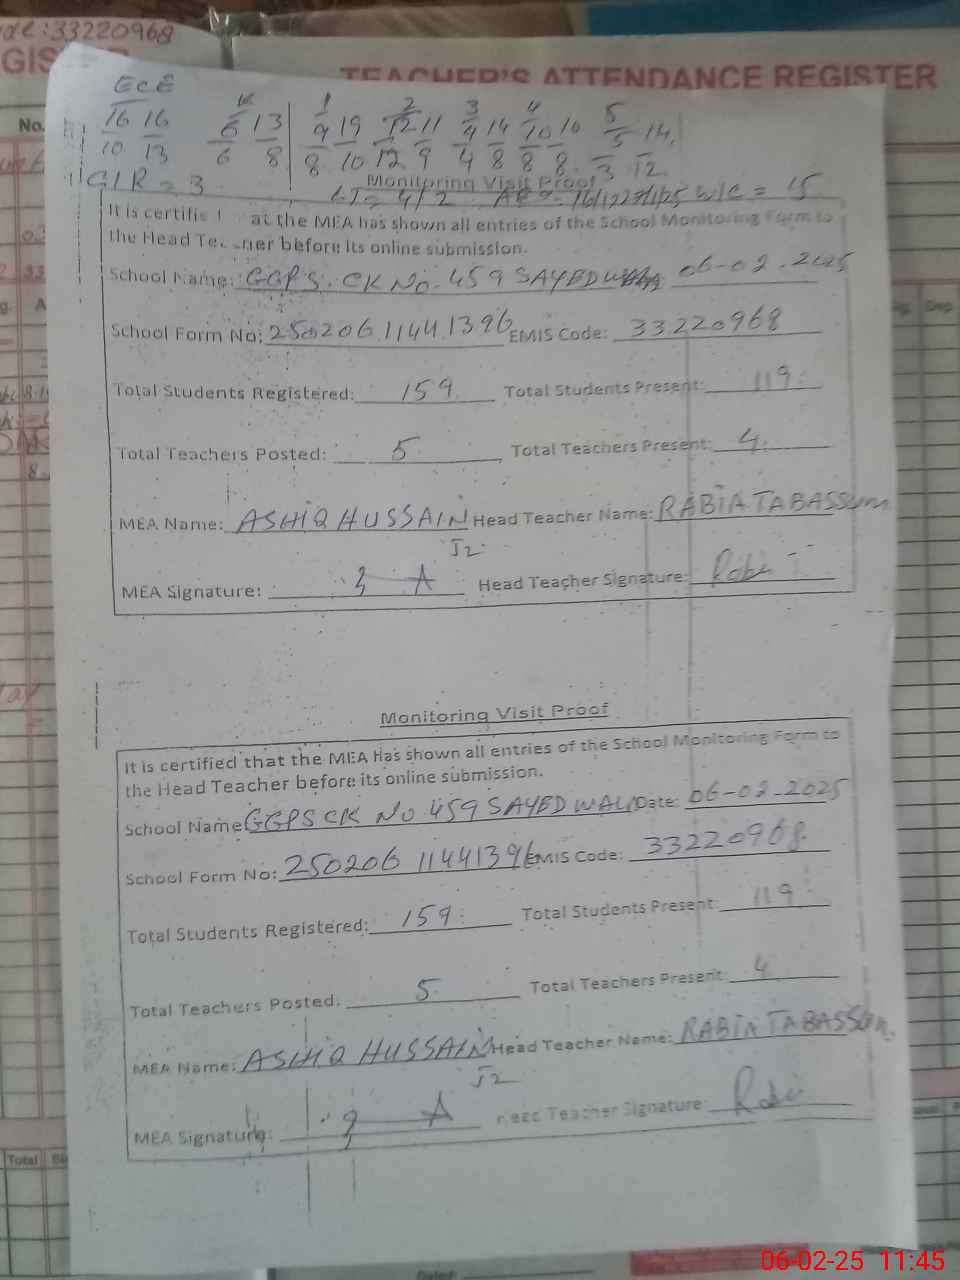 33220968
TEACHER'S ATTENDANCE REGISTER
No.
ECE
16 16 K 6 13 1 9 19 2 12 11 3 4 14 4 10 10 5 5 14
10 13 6 8 8 10 12 9 4 8 8 8 3 12
G/R = 3
Monitoring Visit Proof
LT = 4/2 W/C = 15
It is certifie at the MEA has shown all entries of the School Monitoring Form to
the Head Te ner before its online submission.
School Name: GGPS. CK No. 459 SAYEDWALA 06-02-2025
School Form No: 250206 11441396 EMIS Code: 33220968
Total Students Registered: 159 Total Students Present: 119
Total Teachers Posted: 5 Total Teachers Present: 4
MEA Name: ASHIQ HUSSAIN Head Teacher Name: RABIA TABASSUM
J2
MEA Signature: Head Teacher Signature: Rabi
Monitoring Visit Proof
It is certified that the MEA Has shown all entries of the School Monitoring Form to
the Head Teacher before its online submission.
School Name GGPS CK No 459 SAYED WALA Date: 06-02-2025
School Form No: 250206 11441396 EMIS Code: 33220968
Total Students Registered: 159 Total Students Present: 119
Total Teachers Posted: 5 Total Teachers Present: 4
MEA Name: ASHIQ HUSSAIN Head Teacher Name: RABIA TABASSUM
J2
MEA Signature: Head Teacher Signature: Rabi
Total
06-02-25 11:45